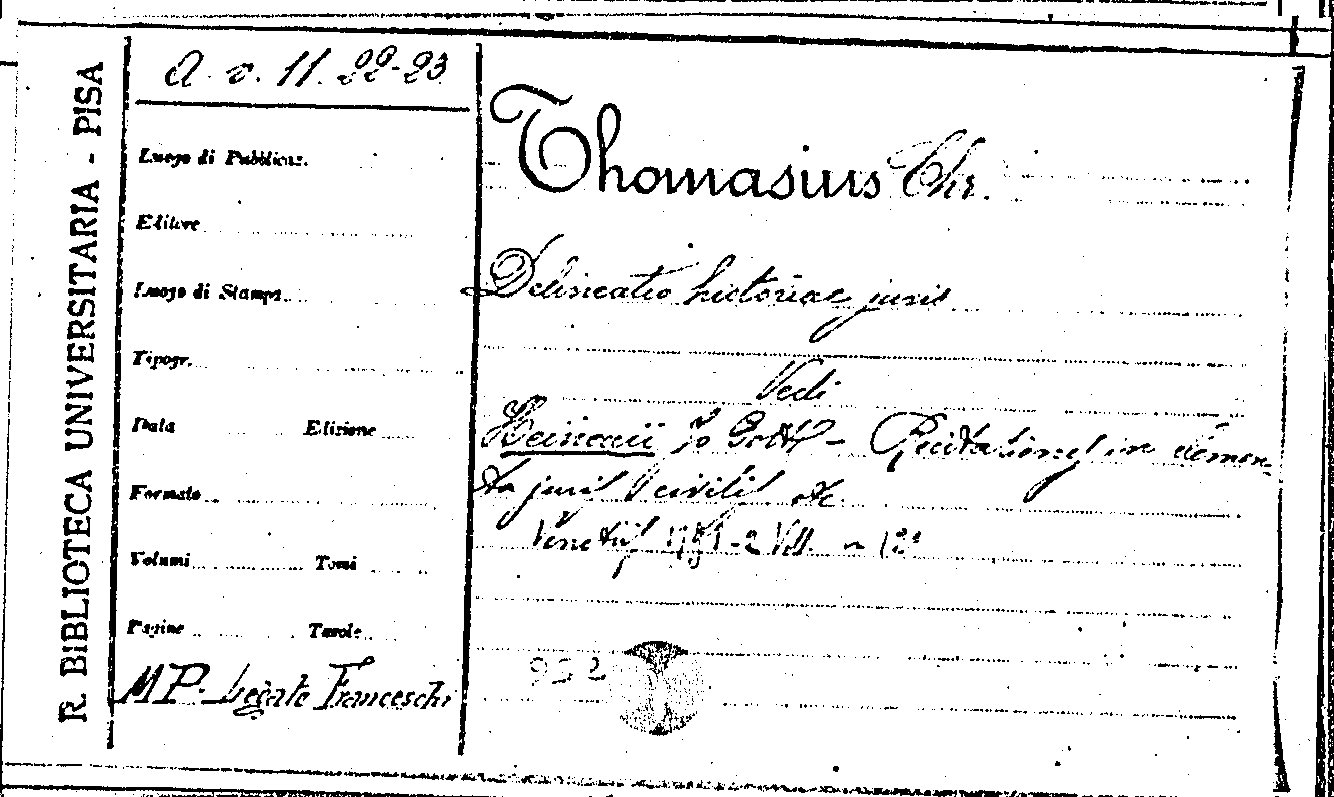 R. BIBLIOTECA UNIVERSITARIA - PISA
A. v. 11. 22-23
Luogo di Pubblicaz.
Editore
Luogo di Stampa
Tipogr.
Data Edizione
Formato
Volumi Tomi
Pagine Tavole
MP. Legato Franceschi
Thomasius Chr.
Delineatio historiae juris
Vedi
Heineccii Jo Gott - Recitationes in elemen-
ta juris civilis etc.
Venetiis 2 Voll. in 12°
922